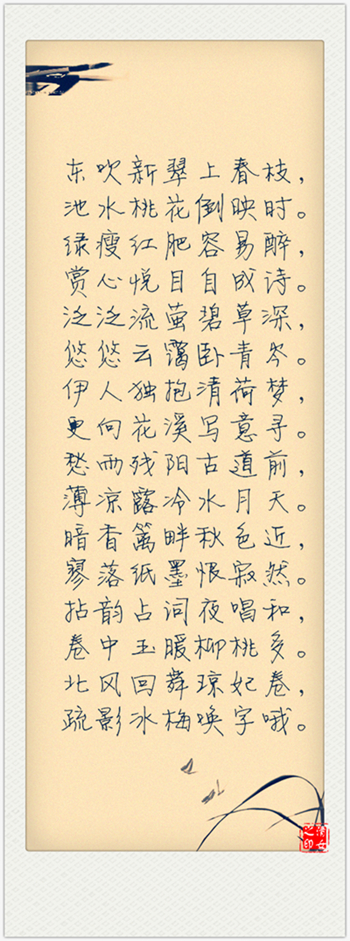 东吹新翠上春枝，
池水桃花倒映时。
绿瘦红肥容易醉，
赏心悦目自成诗。
泛泛流萤碧草深，
悠悠云霭卧青岑。
伊人独抱清荷梦，
更向花溪写意寻。
愁雨残阳古道前，
薄凉露冷水月天。
暗香篱畔秋色近，
寥落纸墨恨寂然。
拈韵占词夜唱和，
卷中玉暖柳桃多。
北风回舞琼妃卷，
疏影冰梅唤字哦。